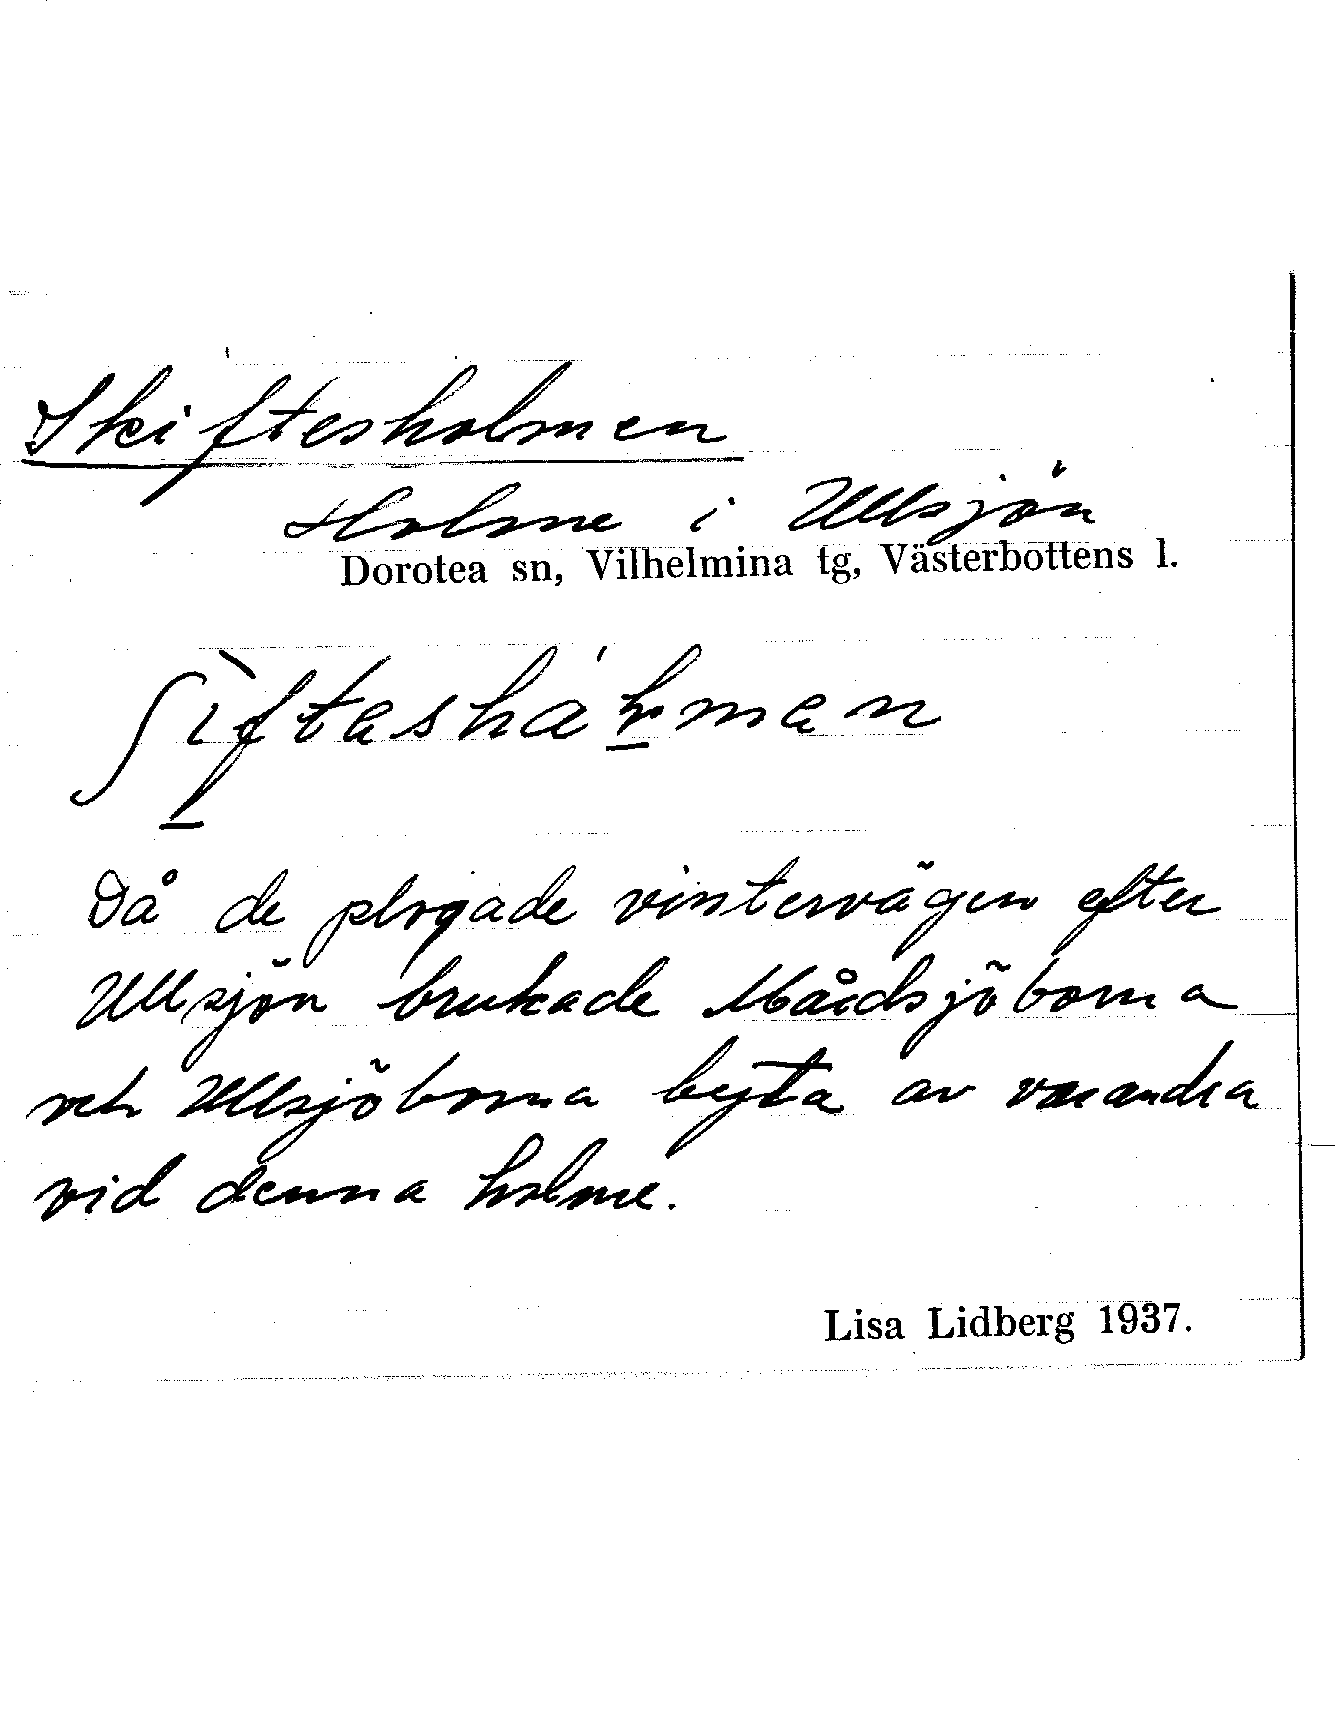 Skiftesholmen
Holme i Ullsjön
Dorotea sn, Vilhelmina tg, Västerbottens l.
Då de plogade vintervägen efter
Ullsjön brukade Mårdsjöborna
och Ullsjöborna byta av varandra
vid denna holme.
Lisa Lidberg 1937.